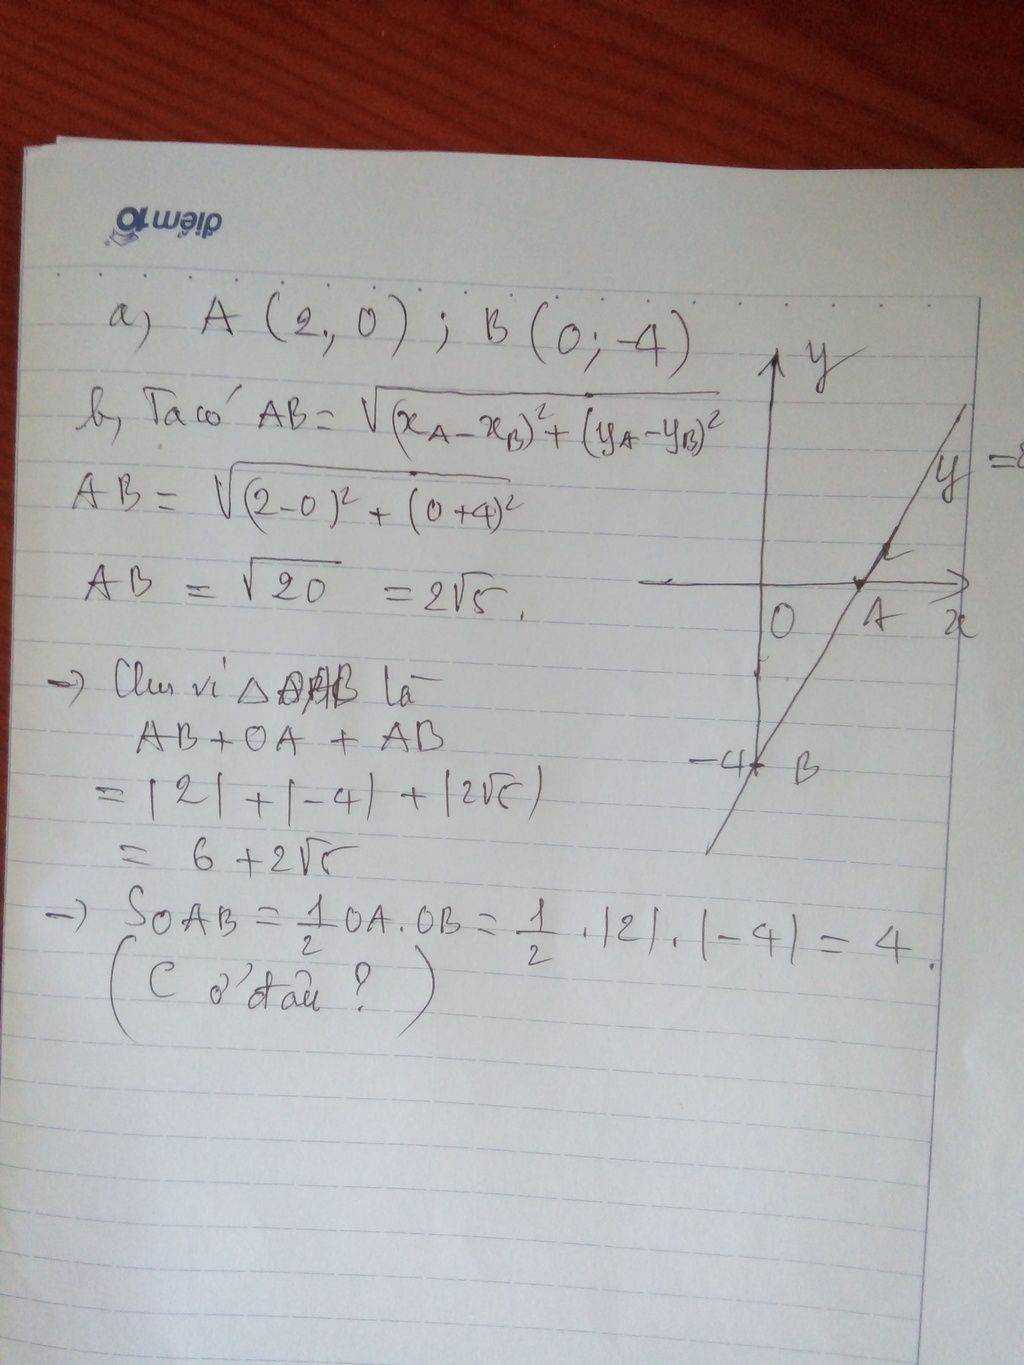 điểm10
a, A (2, 0) ; B (0; -4)
b, Ta có AB = √((x_A - x_B)² + (y_A - y_B)²)
AB = √((2-0)² + (0+4)²)
AB = √20 = 2√5.
→ Chu vi △OAB là
AB + OA + AB
= |2| + |-4| + |2√5|
= 6 + 2√5
→ SOAB = 1/2 OA.OB = 1/2 . |2| . |-4| = 4.
(C ở đâu ?)
y
y =
O
A
x
-4
B